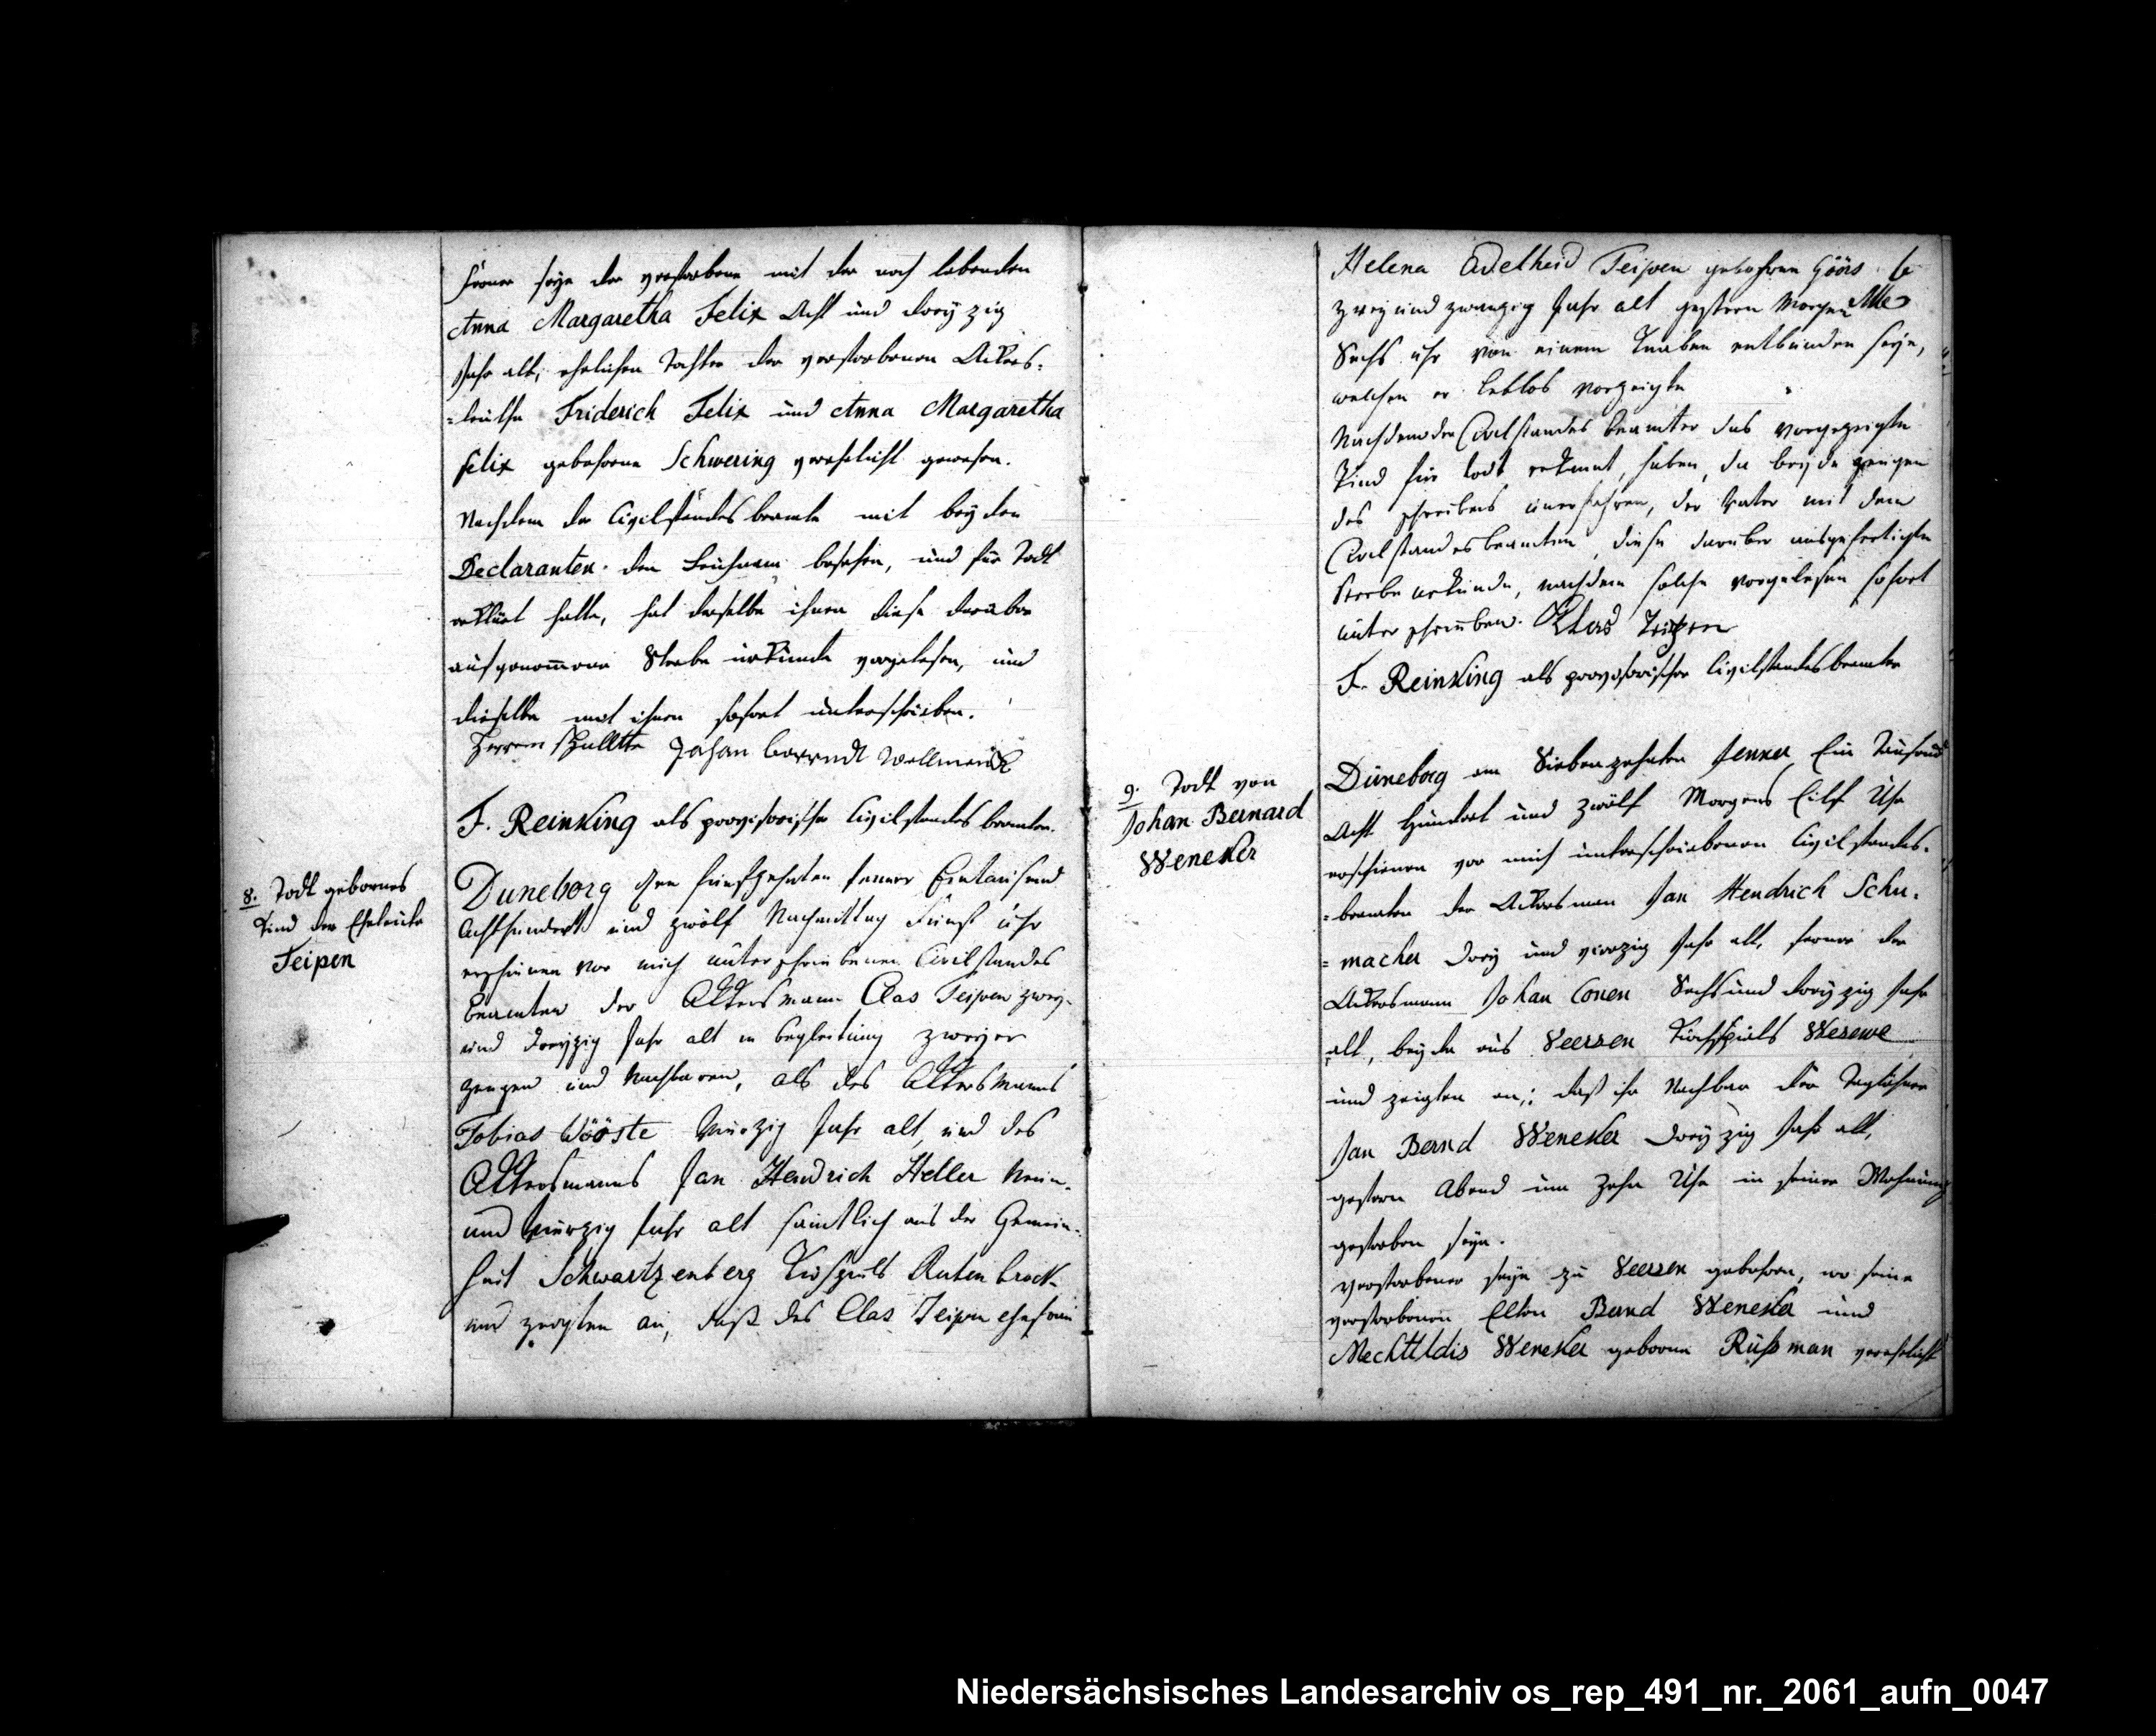 ferner seye der verstorbene mit der noch lebenden
Anna Margaretha Felix Acht und dreyzig
Jahr alt, ehelichen Tochter der verstorbenen Ackers-
=leuthe Friderich Felix und Anna Margaretha
Felix gebohrne Schwering verehelicht gewesen.
Nachdem der Civilstandes beamte mit beyden
Declaranten den Leichnam besehen, und für Todt
erklärt hatte, hat derselbe ihnen diese darüber
aufgenommene Sterbe urkunde vorgelesen, und
dieselbe mit ihnen sofort unterschrieben.
Johan berendt
F. Reinking als provisorischer Civilstandes beamter.
8. Todt gebornes
Kind der Eheleute
Teipen
Duneborg den funfzehnten Jenner Eintausend
Achthundert und zwölf Nachmittag Funf uhr
erschienen vor mich unterschriebenen Civilstandes
beamten der Ackersmann Clas Teipen zwey-
und dreyzig Jahr alt in begleitung zweyer
zeugen und Nachbaren, als des Ackersmanns
Tobias Wööste vierzig Jahr alt und des
Ackersmanns Jan Hendrich Heller Neun-
und vierzig Jahr alt sämtlich aus der Gemein-
heit Schwartzenberg Kirspiels Rutenbrock
und zeigten an, daß des Clas Teipen ehefrau
Helena Adelheid Teipen gebohrne Göörs
zwey und zwanzig Jahr alt gestern Morgen
Sechs uhr von einem Knaben entbunden seye,
welchen er leblos vorzeigte
Nachdem der Civilstandes beamter das vorgezeigte
Kind für todt erkannt, haben, da beyde zeugen
des schreibens unerfahren, der Vater mit dem
Civilstandesbeamten, diese darüber ausgefertigte
Sterbe urkunde, nachdem solche vorgelesen sofort
unterschrieben. Klas Teipen
F. Reinking als provisorischer Civilstandesbeamter
9. Todt von
Johan Bernard
Weneker
Düneborg am Siebenzehnten Jenner Ein Tausend
Acht Hundert und zwölf Morgens Eilf Uhr
erschienen vor mich unterschriebenen Civilstandes-
=beamten der Ackersman Jan Hendrich Schu-
=macher drey und vierzig Jahr alt, ferner der
Ackersmann Johan Conen Sechs und dreyzig Jahr
alt, beyde aus Veersen Kirchspiels Wesewe
und zeigten an, daß ihr Nachbar der Taglöhner
Jan Bernd Weneker dreyzig Jahr alt,
gestern Abend um Zehn Uhr in seiner Wohnung
gestorben seye.
Verstorbener seye zu Veersen gebohren, wo seine
verstorbenen Eltern Bernd Weneker und
Mechtildis Weneker geborne Rüßman verehelicht
Niedersächsisches Landesarchiv os_rep_491_nr._2061_aufn_0047